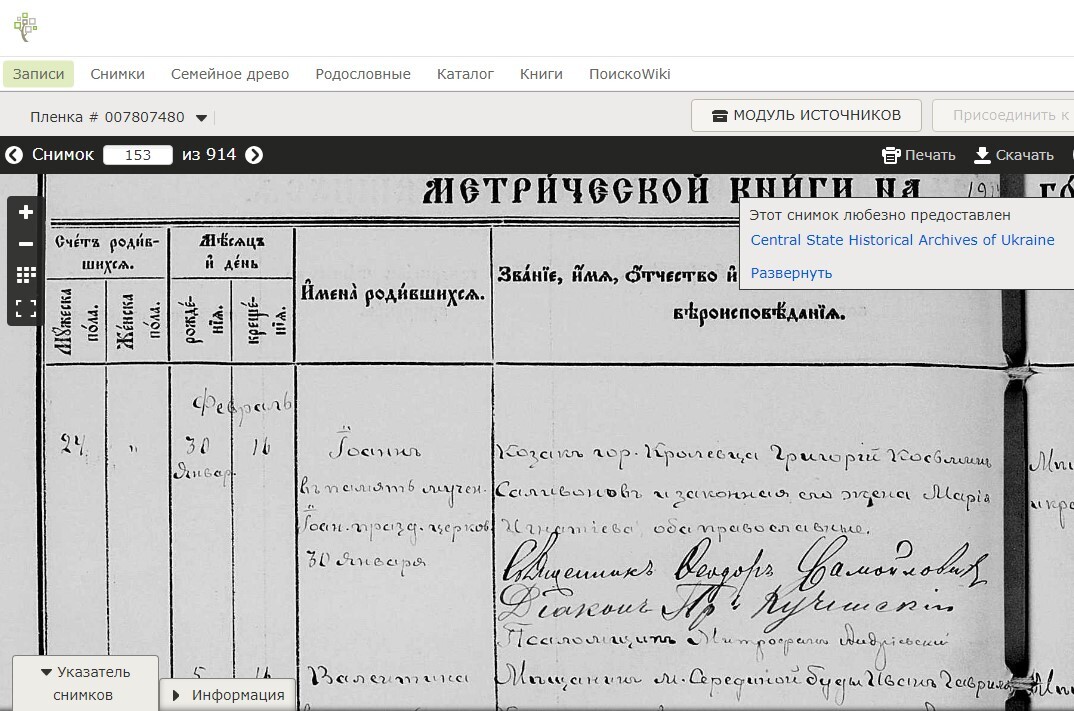 Записи Снимки Семейное древо Родословные Каталог Книги ПоискоWiki
Пленка # 007807480
МОДУЛЬ ИСТОЧНИКОВ
Присоединить к
Снимок 153 из 914
Печать Скачать
МЕТРИ́ЧЕСКОЙ КНИ́ГИ НА
Этот снимок любезно предоставлен
Central State Historical Archives of Ukraine
Развернуть
Сче́тъ роди́в-
шихся.
Мѣ́сяцъ
и҆ де́нь
Мꙋ́жеска
по́ла.
Же́нска
по́ла.
рожде́-
нїѧ.
креще́-
нїѧ.
И҆мена̀ роди́вшихсѧ.
Зва́нїе, и҆́мѧ, ѻ҆́тчество и҆
вѣроисповѣ́данїѧ.
Февраль
24 " 30 16
Январ.
Іоаннъ
въ память мучен.
Іоан. празд. церков.
30 Января
Козакъ гор. Кролевца Григорій Косьминъ
Саливоновъ и законная его жена Марія
Игнатіева, оба православные.
Священникъ Ѳеодоръ Самойловичъ
Діаконъ
Псаломщикъ Митрофанъ
5 16 Валентина
Мѣщанинъ м. Середино Буды Иванъ Гаврилов
Указатель
снимков
Информация